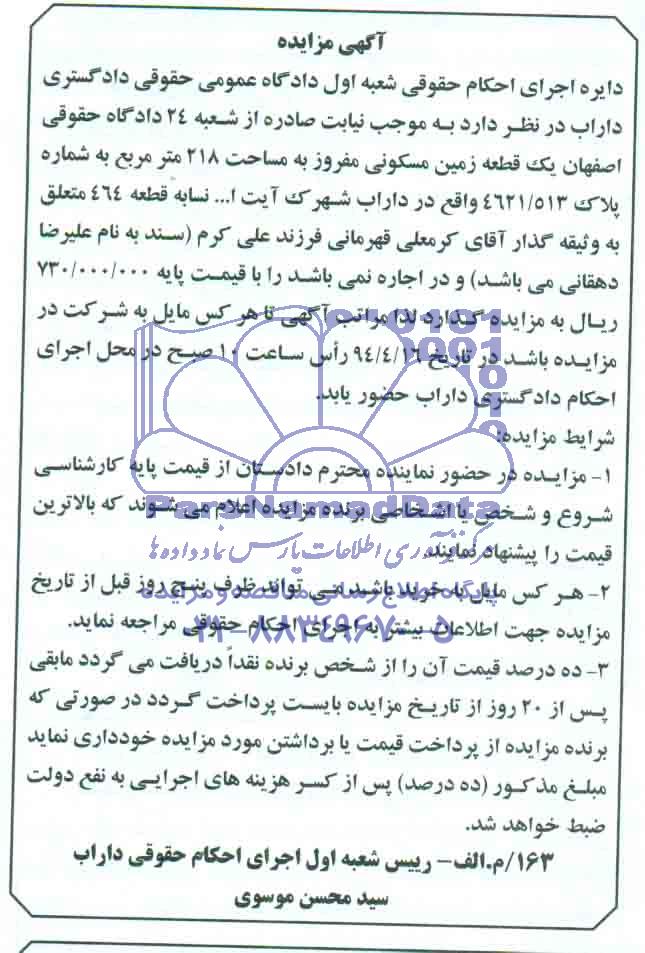 آگهی مزایده
دایره اجرای احکام حقوقی شعبه اول دادگاه عمومی حقوقی دادگستری
داراب در نظر دارد به موجب نیابت صادره از شعبه ۲۴ دادگاه حقوقی
اصفهان یک قطعه زمین مسکونی مفروز به مساحت ۲۱۸ متر مربع به شماره
پلاک ۴۶۲۱/۵۱۳ واقع در داراب شهرک آیت ا... نسابه قطعه ۴۶۴ متعلق
به وثیقه گذار آقای کرمعلی قهرمانی فرزند علی کرم (سند به نام علیرضا
دهقانی می باشد) و در اجاره نمی باشد را با قیمت پایه ۷۳۰/۰۰۰/۰۰۰
ریال به مزایده گذارد لذا مراتب آگهی تا هر کس مایل به شرکت در
مزایده باشد در تاریخ ۹۴/۴/۱۶ رأس ساعت ۱۰ صبح در محل اجرای
احکام دادگستری داراب حضور یابد.
شرایط مزایده:
۱- مزایده در حضور نماینده محترم دادستان از قیمت پایه کارشناسی
شروع و شخص یا اشخاصی برنده مزایده اعلام می شوند که بالاترین
ParsNamadData
قیمت را پیشنهاد نمایند.
مرکز فرآوری اطلاعات پارس نماد داده ها
۲- هر کس مایل به خرید باشد می تواند ظرف پنج روز قبل از تاریخ
پایگاه اطلاع رسانی مناقصه و مزایده
مزایده جهت اطلاعات بیشتر به اجرای احکام حقوقی مراجعه نماید.
۰۲۱-۸۸۳۴۹۶۷۰-۵
۳- ده درصد قیمت آن را از شخص برنده نقداً دریافت می گردد مابقی
پس از ۲۰ روز از تاریخ مزایده بایست پرداخت گردد در صورتی که
برنده مزایده از پرداخت قیمت یا برداشتن مورد مزایده خودداری نماید
مبلغ مذکور (ده درصد) پس از کسر هزینه های اجرایی به نفع دولت
ضبط خواهد شد.
۱۶۳/م.الف- رییس شعبه اول اجرای احکام حقوقی داراب
سید محسن موسوی